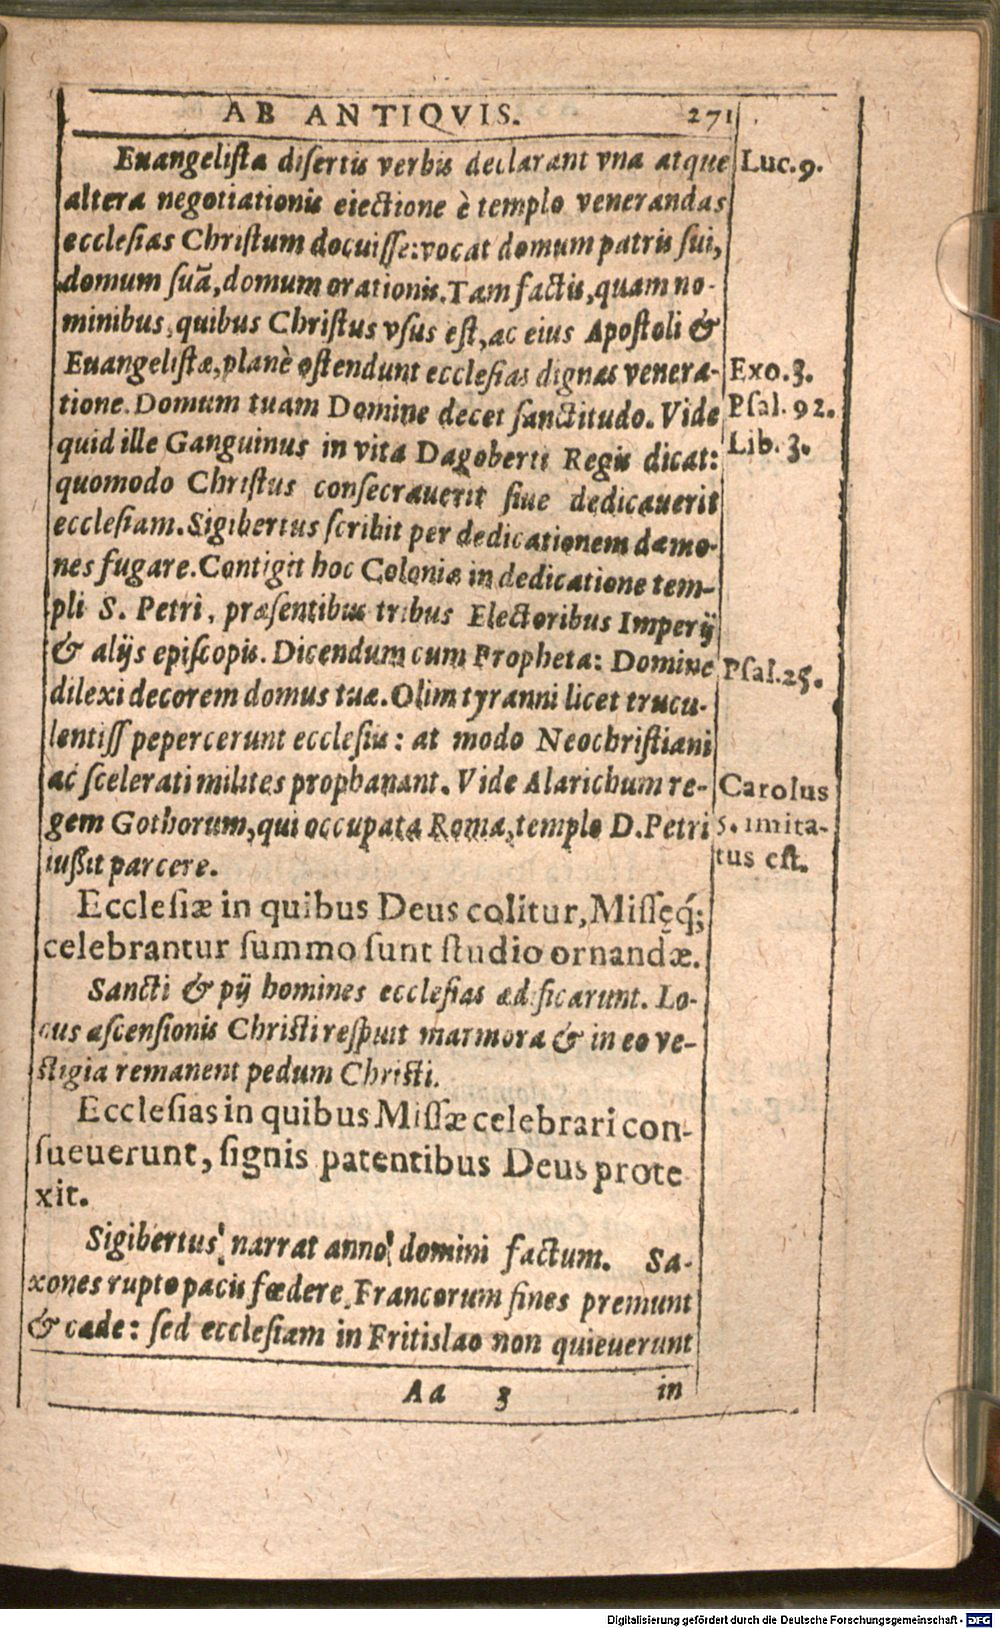 AB ANTIQVIS. 271
Euangelista disertis verbis declarant vna atque
Luc. 9.
altera negotiationis eiectione è templo venerandas
ecclesias Christum docuisse: vocat domum patris sui,
domum suã, domum orationis. Tam factis, quam no-
minibus, quibus Christus vsus est, ac eius Apostoli &
Euangelistæ, planè ostendunt ecclesias dignas venera-
Exo. 3.
tione. Domum tuam Domine decet sanctitudo. Vide
Psal. 92.
quid ille Ganguinus in vita Dagoberti Regis dicat:
Lib. 3.
quomodo Christus consecrauerit siue dedicauerit
ecclesiam. Sigibertus scribit per dedicationem dæmo-
nes fugare. Contigit hoc Coloniæ in dedicatione tem-
pli S. Petri, præsentibus tribus Electoribus Imperij
& alijs episcopis. Dicendum cum Propheta: Domine
Psal. 25.
dilexi decorem domus tuæ. Olim tyranni licet trucu-
lentiss pepercerunt ecclesiis: at modo Neochristiani
ac scelerati milites prophanant. Vide Alarichum re-
Carolus
gem Gothorum, qui occupata Roma, templo D. Petri
5. imita-
iussit parcere.
tus est.
Ecclesiæ in quibus Deus colitur, Missęq́;
celebrantur summo sunt studio ornandæ.
Sancti & pij homines ecclesias ædificarunt. Lo-
cus ascensionis Christi respuit marmora & in eo ve-
stigia remanent pedum Christi.
Ecclesias in quibus Missæ celebrari con-
sueuerunt, signis patentibus Deus prote
xit.
Sigibertus narrat anno domini factum. Sa-
xones rupto pacis fœdere Francorum fines premunt
& cæde: sed ecclesiam in Fritislao non quieuerunt
Aa 3 in
Digitalisierung gefördert durch die Deutsche Forschungsgemeinschaft - DFG